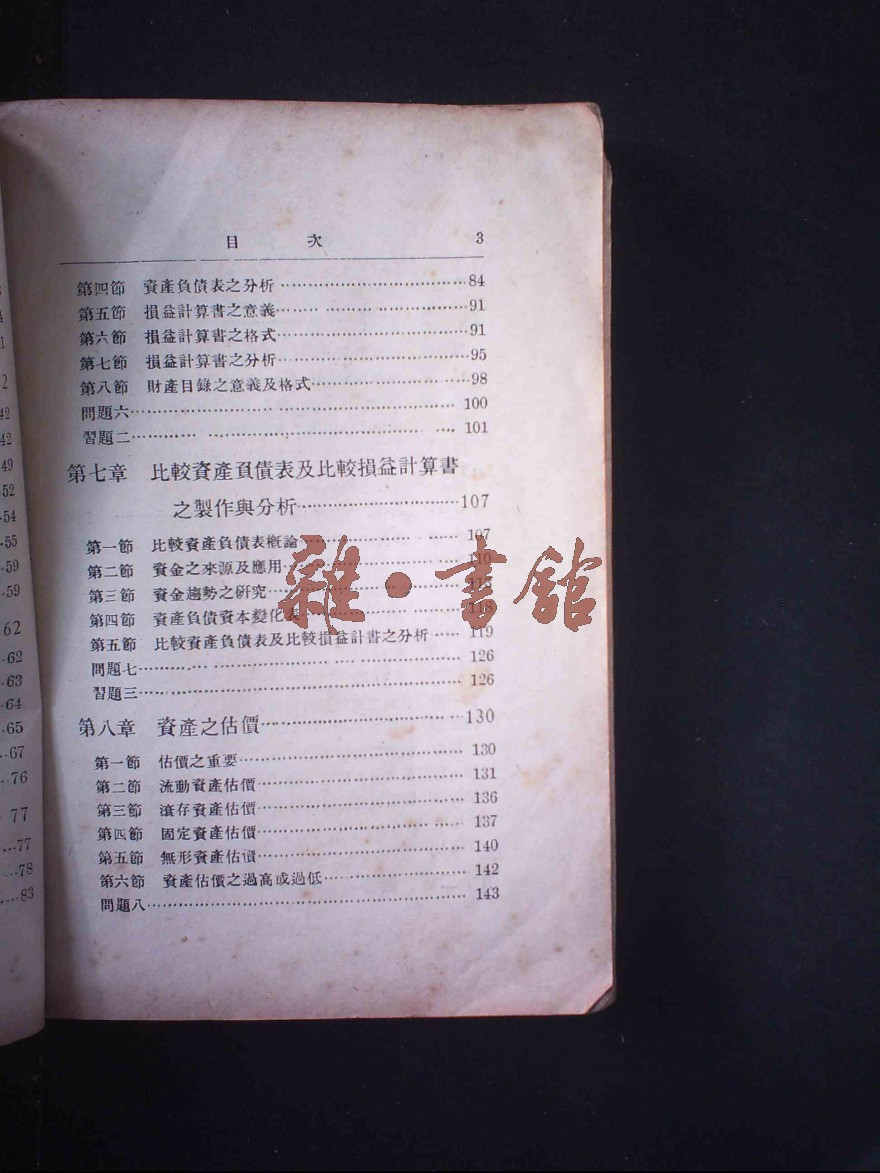 目 次 3
第四節 資產負債表之分析 84
第五節 損益計算書之意義 91
第六節 損益計算書之格式 91
第七節 損益計算書之分析 95
第八節 財產目錄之意義及格式 98
問題六 100
習題二 101
第七章 比較資產負債表及比較損益計算書
之製作與分析 107
第一節 比較資產負債表概論 107
第二節 資金之來源及應用 110
第三節 資金趨勢之研究
第四節 資產負債資本變化表 118
第五節 比較資產負債表及比較損益計書之分析 119
問題七 126
習題三 126
第八章 資產之估價 130
第一節 估價之重要 130
第二節 流動資產估價 131
第三節 滾存資產估價 136
第四節 固定資產估價 137
第五節 無形資產估價 140
第六節 資產估價之過高或過低 142
問題八 143
雜·書館
42
42
49
52
54
55
59
59
62
62
63
64
65
67
76
77
77
78
83